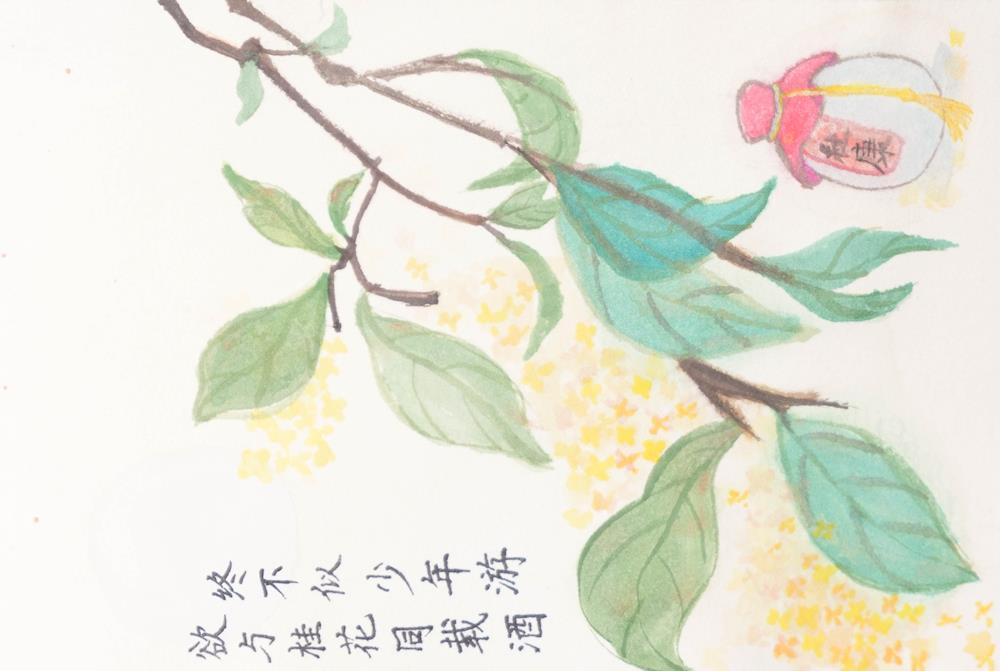 欲与桂花同载酒
终不似少年游